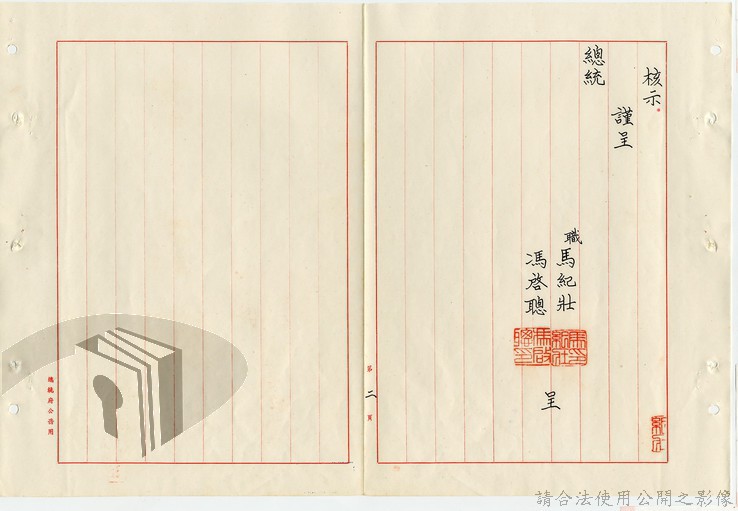 核示
謹呈
總統
職 馬紀壯
馮啓聰
呈
第二頁
總統府公務用
請合法使用公開之影像